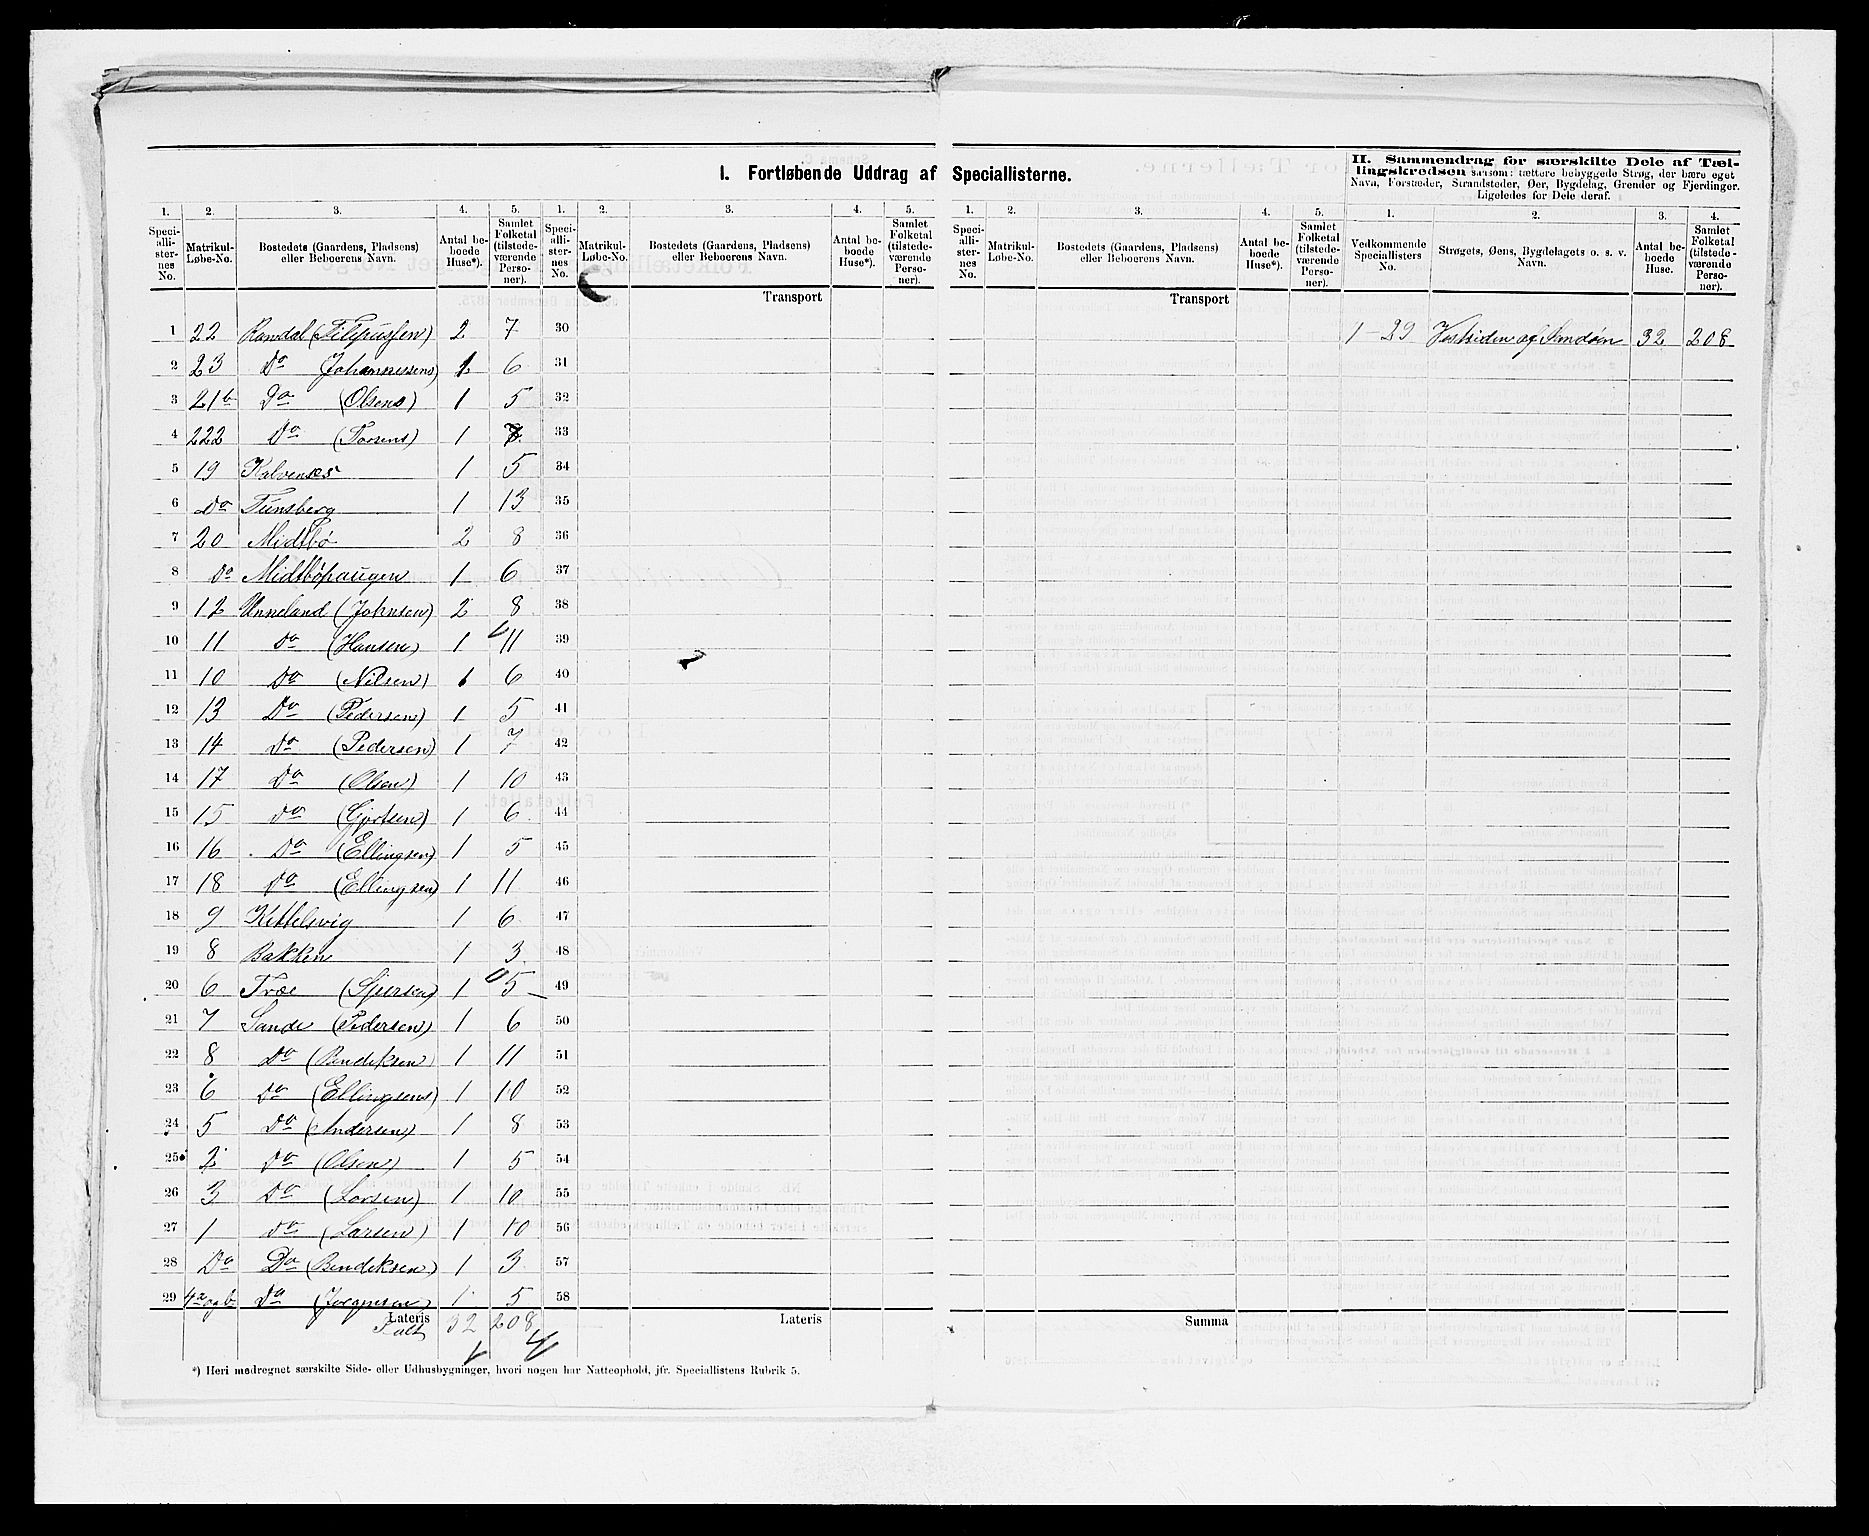 I. Fortløbende Uddrag af Speciallisterne.
II. Sammendrag for særskilte Dele af Tæl-
lingskredsen saasom: tættere bebyggede Strøg, der bære eget
Navn, Forstæder, Strandsteder, Øer, Bygdelag, Grender og Fjerdinger.
Ligeledes for Dele deraf.
1. 2. 3. 4. 5. 1. 2. 3. 4. 5. 1. 2. 3. 4. 5. 1. 2. 3. 4.
Speci-alli-ster-nes No. Matrikul-Løbe-No. Bostedets (Gaardens, Pladsens) eller Beboerens Navn. Antal be-boede Huse*). Samlet Folketal (tilstede-værende Perso-ner).
Speci-alli-ster-nes No. Matrikul-Løbe-No. Bostedets (Gaardens, Pladsens) eller Beboerens Navn. Antal be-boede Huse*). Samlet Folketal (tilstede-værende Perso-ner).
Speci-alli-ster-nes No. Matrikul-Løbe-No. Bostedets (Gaardens, Pladsens) eller Beboerens Navn. Antal be-boede Huse*). Samlet Folketal (tilstede-værende Perso-ner).
Vedkommende Speciallisters No. Strøgets, Øens, Bygdelagets o. s. v. Navn. Antal be-boede Huse. Samlet Folketal (tilstede-værende Perso-ner).
Transport Transport
1 22 Ramdal (Filipussen) 2 7 30 1-29 Vestsiden af Sandøen 32 208
2 23 Do Johannessens) 1 6 31
3 21b Do (Olsens) 1 5 32
4 222 Do (Toosens) 1 33
5 19 Kalvenes 1 5 34
6 Do Tunsberg 1 13 35
7 20 Midtbö 2 8 36
8 Do Midtböhaugen 1 6 37
9 12 Unneland (Johnsen) 2 8 38
10 11 Do (Hansen) 1 11 39
11 10 Do (Nilsen) 1 6 40
12 13 Do (Pedersen) 1 5 41
13 14 Do (Pedersen) 1 7 42
14 17 Do (Olsen) 1 10 43
15 15 Do (Gjertsen) 1 6 44
16 16 Do (Ellingsen) 1 5 45
17 18 Do (Ellingsen) 1 11 46
18 9 Kittelsvig 1 6 47
19 8 Bakken 1 3 48
20 6 Træe (Sjursen) 1 5 49
21 7 Sande (Pedersen) 1 6 50
22 8 Do (Bendiksen) 1 11 51
23 6 Do (Ellingsens) 1 10 52
24 5 Do (Andersen) 1 8 53
25 2 Do (Olsen) 1 5 54
26 3 Do (Larsen) 1 10 55
27 1 Do (Larsen) 1 10 56
28 Do Do (Bendiksen) 1 3 57
29 4a og b Do (Jörgensen) 1 5 58
Lateris Lateris Summa
I alt 32 208
*) Heri medregnet særskilte Side- eller Udhusbygninger, hvori nogen har Natteophold, jfr. Speciallistens Rubrik 5.